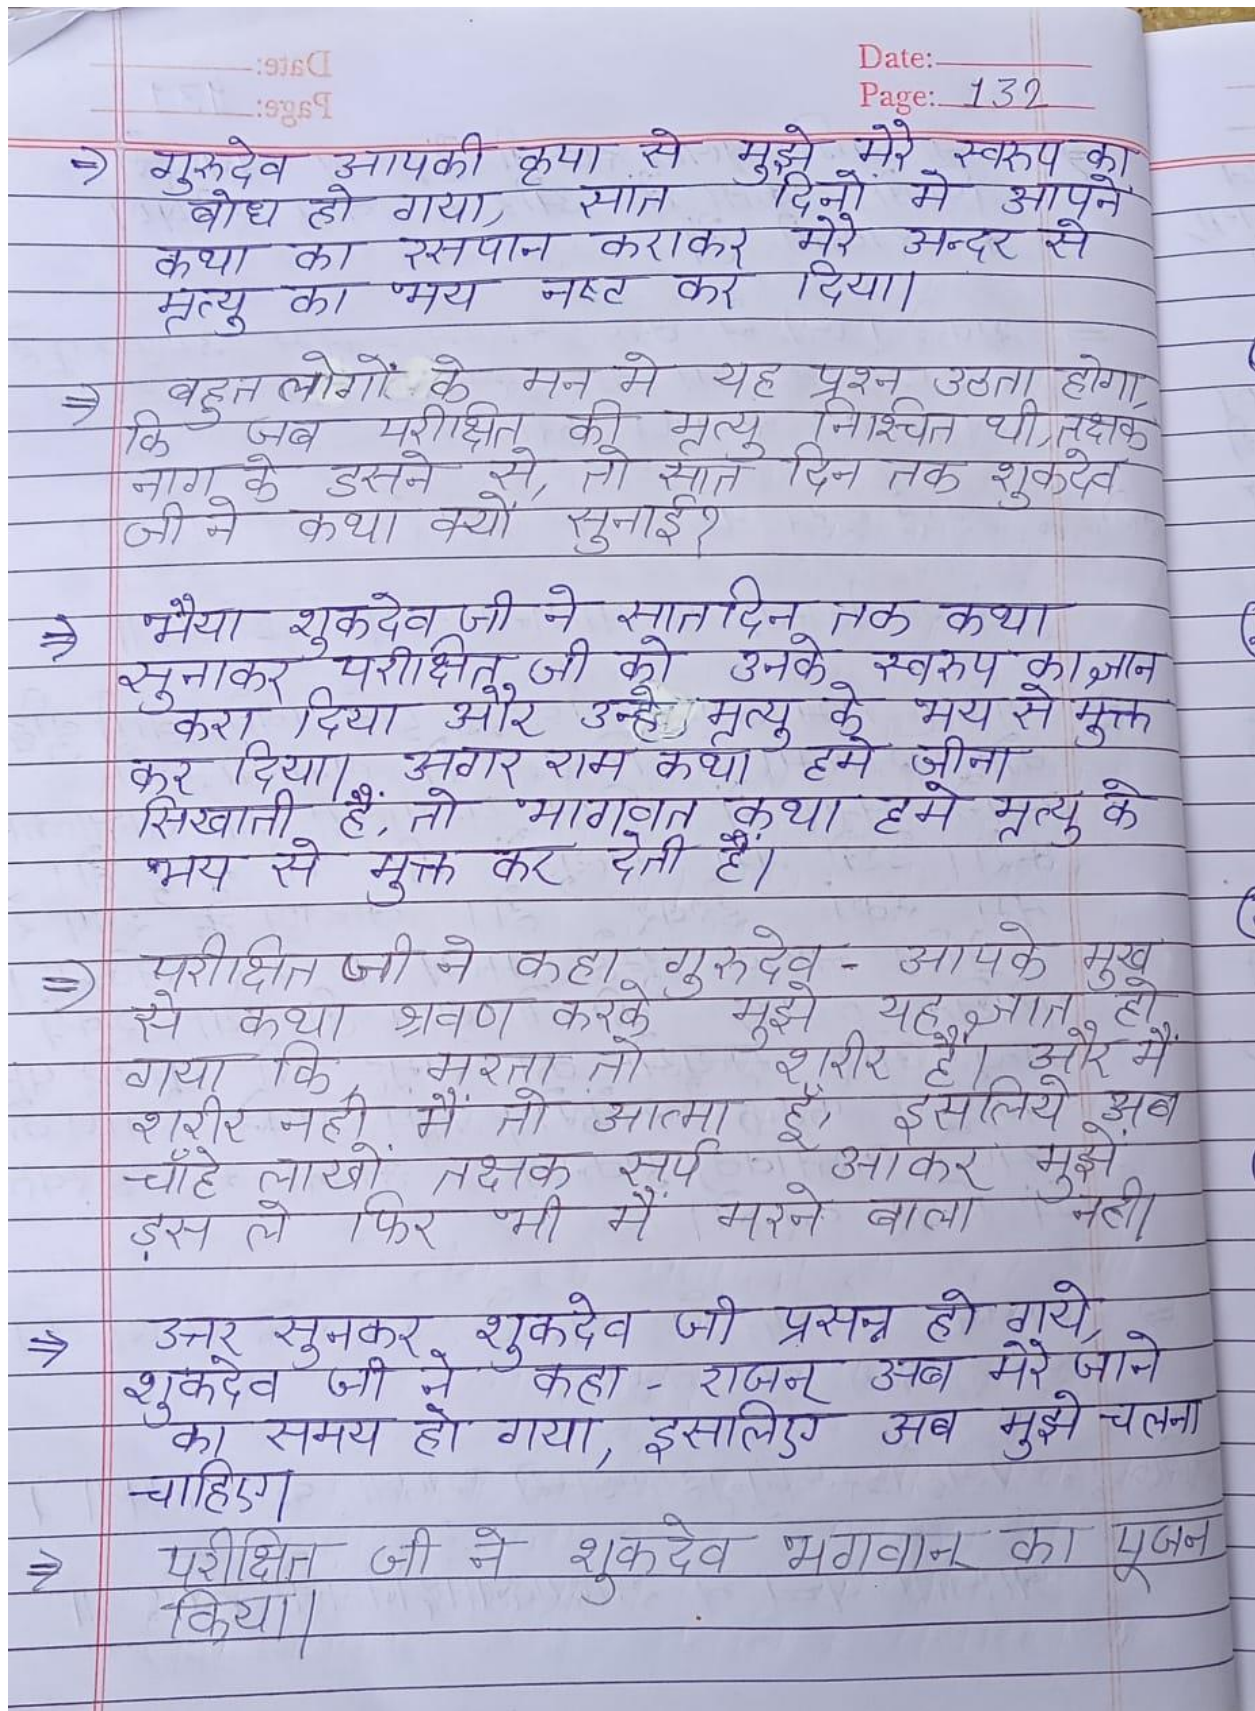 Date:
Page: 132
⇒ गुरुदेव आपकी कृपा से मुझे मेरे स्वरुप का
बोध हो गया, सात दिनों मे आपने
कथा का रसपान कराकर मेरे अन्दर से
मृत्यु का भय नष्ट कर दिया।
⇒ बहुत लोगों के मन मे यह प्रश्न उठता होगा,
कि जब परीक्षित की मृत्यु निश्चित थी, तक्षक
नाग के डसने से, तो सात दिन तक शुकदेव
जी ने कथा क्यों सुनाई?
⇒ भैया शुकदेव जी ने सात दिन तक कथा
सुनाकर परीक्षित जी को उनके स्वरुप का ज्ञान
करा दिया और उन्हे मृत्यु के भय से मुक्त
कर दिया। अगर राम कथा हमे जीना
सिखाती हैं, तो भागवत कथा हमे मृत्यु के
भय से मुक्त कर देती हैं।
⇒ परीक्षित जी ने कहा गुरुदेव - आपके मुख
से कथा श्रवण करके मुझे यह ज्ञात हो
गया कि, मरता तो शरीर हैं। और मैं
शरीर नही मैं तो आत्मा हूँ, इसलिये अब
चाँहे लाखों तक्षक सर्प आकर मुझे
ड़स ले फिर भी मैं मरने बाला नही।
⇒ उत्तर सुनकर शुकदेव जी प्रसन्न हो गये,
शुकदेव जी ने कहा - राजन् अब मेरे जाने
का समय हो गया, इसलिए अब मुझे चलना
चाहिए।
⇒ परीक्षित जी ने शुकदेव भगवान् का पूजन
किया।